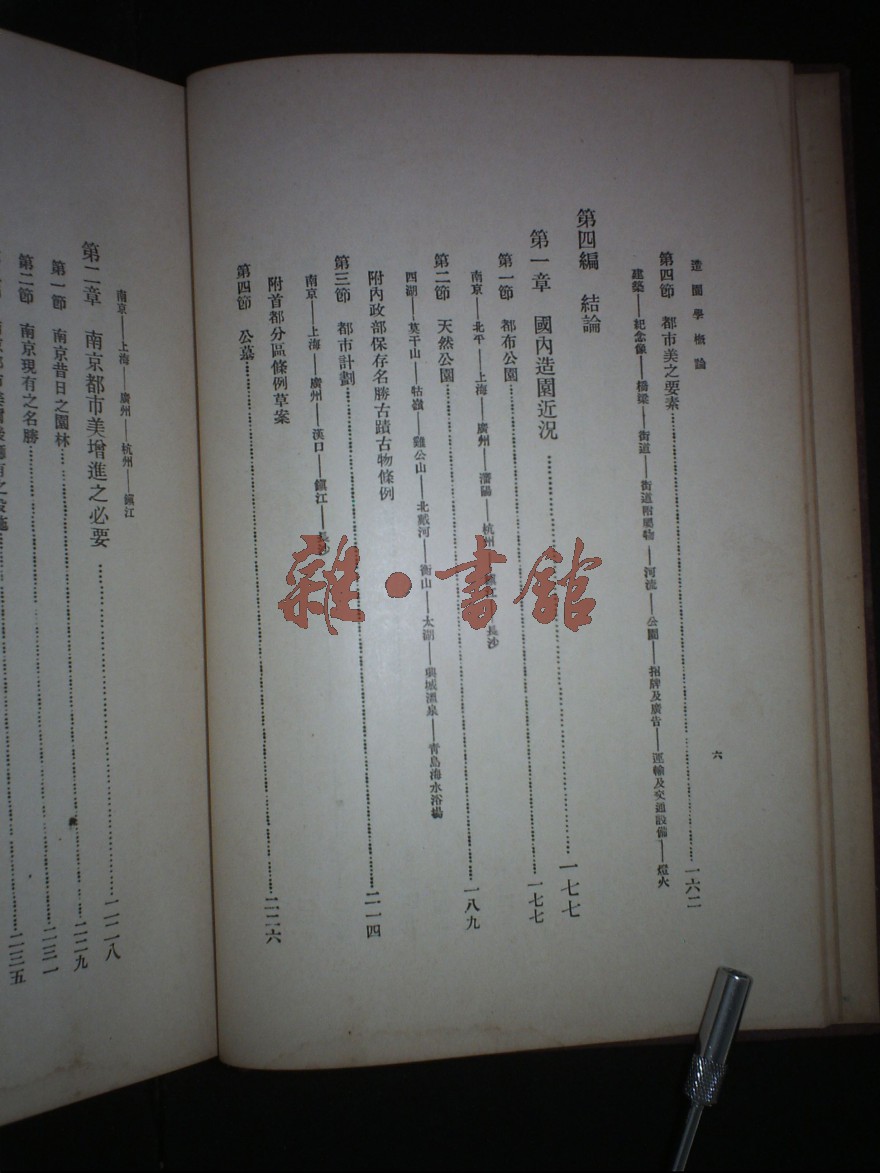 造園學概論
六
第四節 都市美之要素……一六二
建築——紀念像——橋梁——街道——街道附屬物——河流——公園——招牌及廣告——運輸及交通設備——燈火
第四編 結論
第一章 國內造園近況……一七七
第一節 都布公園……一七七
南京——北平——上海——廣州——瀋陽——杭州——鎮江——長沙
第二節 天然公園……一八九
四湖——莫干山——牯嶺——雞公山——北戴河——衡山——太湖——興城溫泉——青島海水浴場
附內政部保存名勝古蹟古物條例
第三節 都市計劃……二一四
南京——上海——廣州——漢口——鎮江——長沙
附首都分區條例草案
第四節 公墓……二二六
南京——上海——廣州——杭州——鎮江
第二章 南京都市美增進之必要……二二八
第一節 南京昔日之園林……二二九
第二節 南京現有之名勝……二三一
二三五
雜·書館